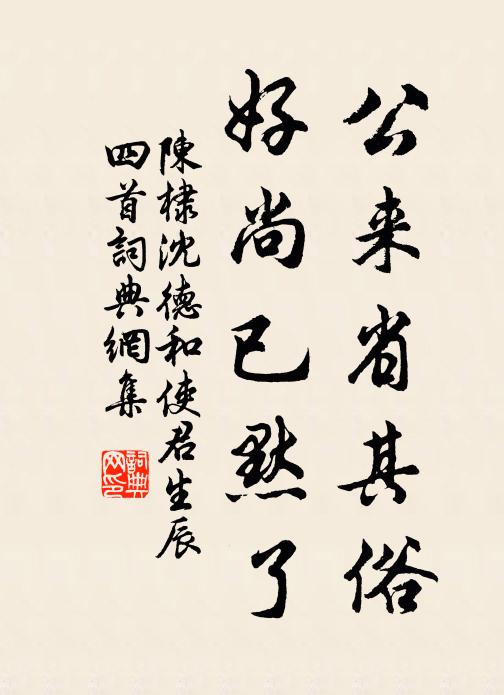 公来省其俗
好尚已黙了
陳棣沈德和使君生辰
四首詞典網集
詞典
网印